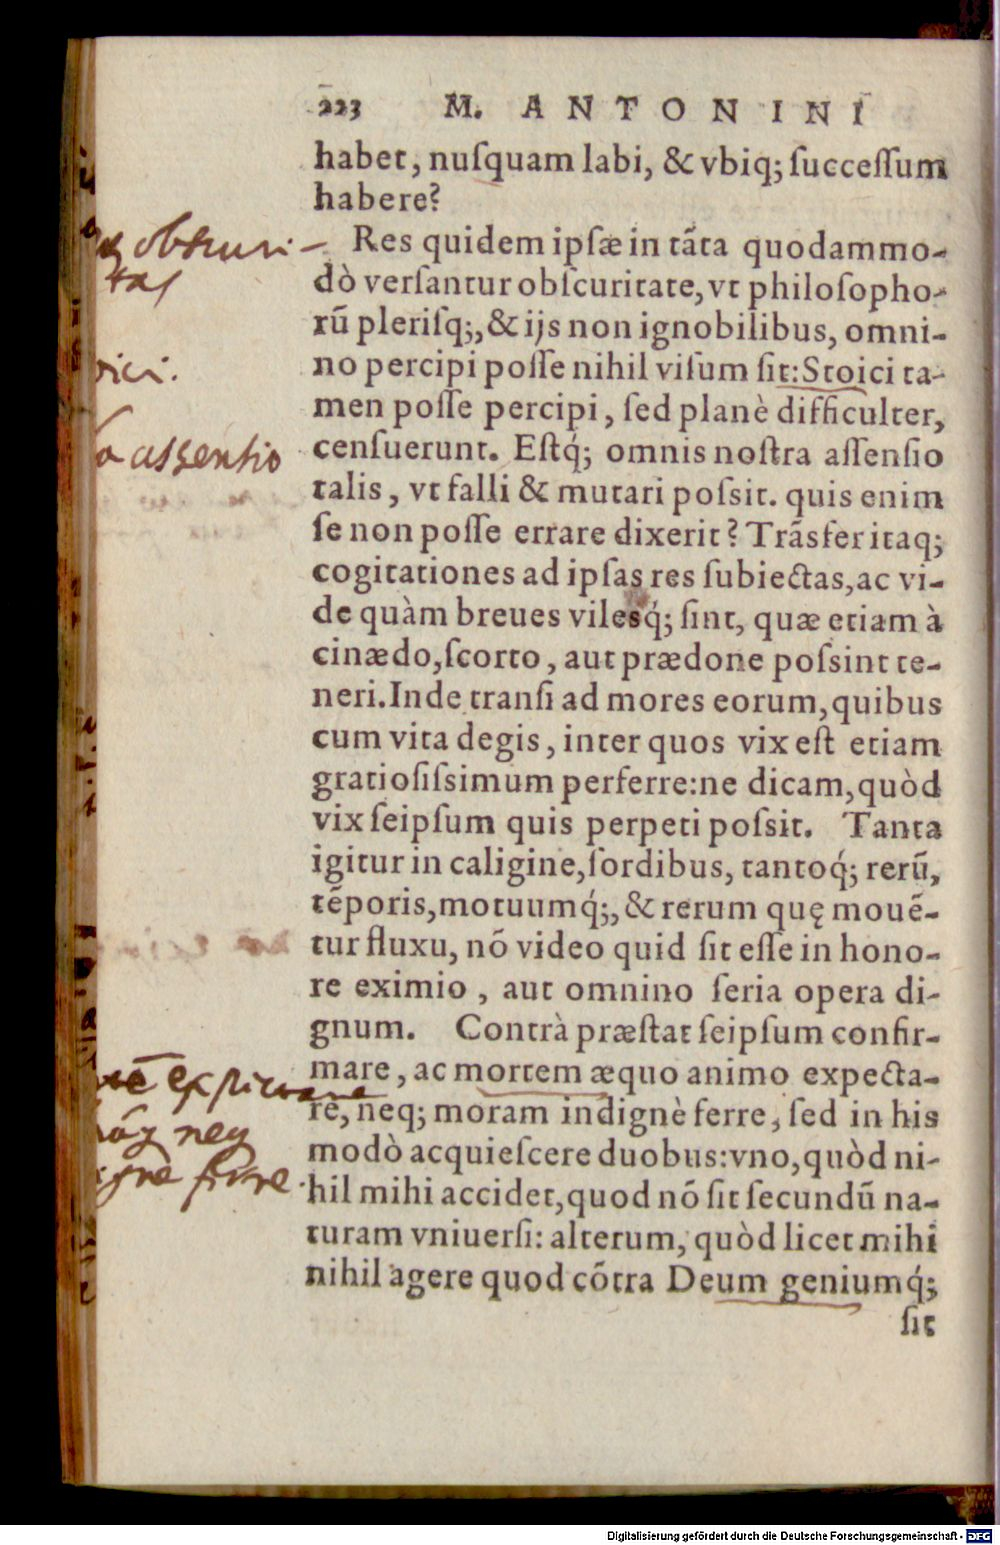 223 M. ANTONINI
habet, nuſquam labi, & vbiq; ſucceſſum
habere?
Res quidem ipſæ in tãta quodammo-
dò verſantur obſcuritate, vt philoſopho-
rũ pleriſq;, & ijs non ignobilibus, omni-
no percipi poſſe nihil viſum ſit: Stoici ta-
men poſſe percipi, ſed planè difficulter,
cenſuerunt. Eſtq́; omnis noſtra aſſenſio
talis, vt falli & mutari poſsit. quis enim
ſe non poſſe errare dixerit? Trãsfer itaq;
cogitationes ad ipſas res ſubiectas, ac vi-
de quàm breues vilesq́; ſint, quæ etiam à
cinædo, ſcorto, aut prædone poſsint te-
neri. Inde tranſi ad mores eorum, quibus
cum vita degis, inter quos vix eſt etiam
gratioſiſsimum perferre: ne dicam, quòd
vix ſeipſum quis perpeti poſsit. Tanta
igitur in caligine, ſordibus, tantoq́; rerũ,
tẽporis, motuumq́;, & rerum quę mouẽ-
tur fluxu, nõ video quid ſit eſſe in hono-
re eximio, aut omnino ſeria opera di-
gnum. Contrà præſtat ſeipſum confir-
mare, ac mortem æquo animo expecta-
re, neq; moram indignè ferre, ſed in his
modò acquieſcere duobus: vno, quòd ni-
hil mihi accidet, quod nõ ſit ſecundũ na-
turam vniuerſi: alterum, quòd licet mihi
nihil agere quod cõtra Deum geniumq́;
ſit
obscuri-
tas
assensio
neq
ferre.
Digitalisierung gefördert durch die Deutsche Forschungsgemeinschaft - DFG